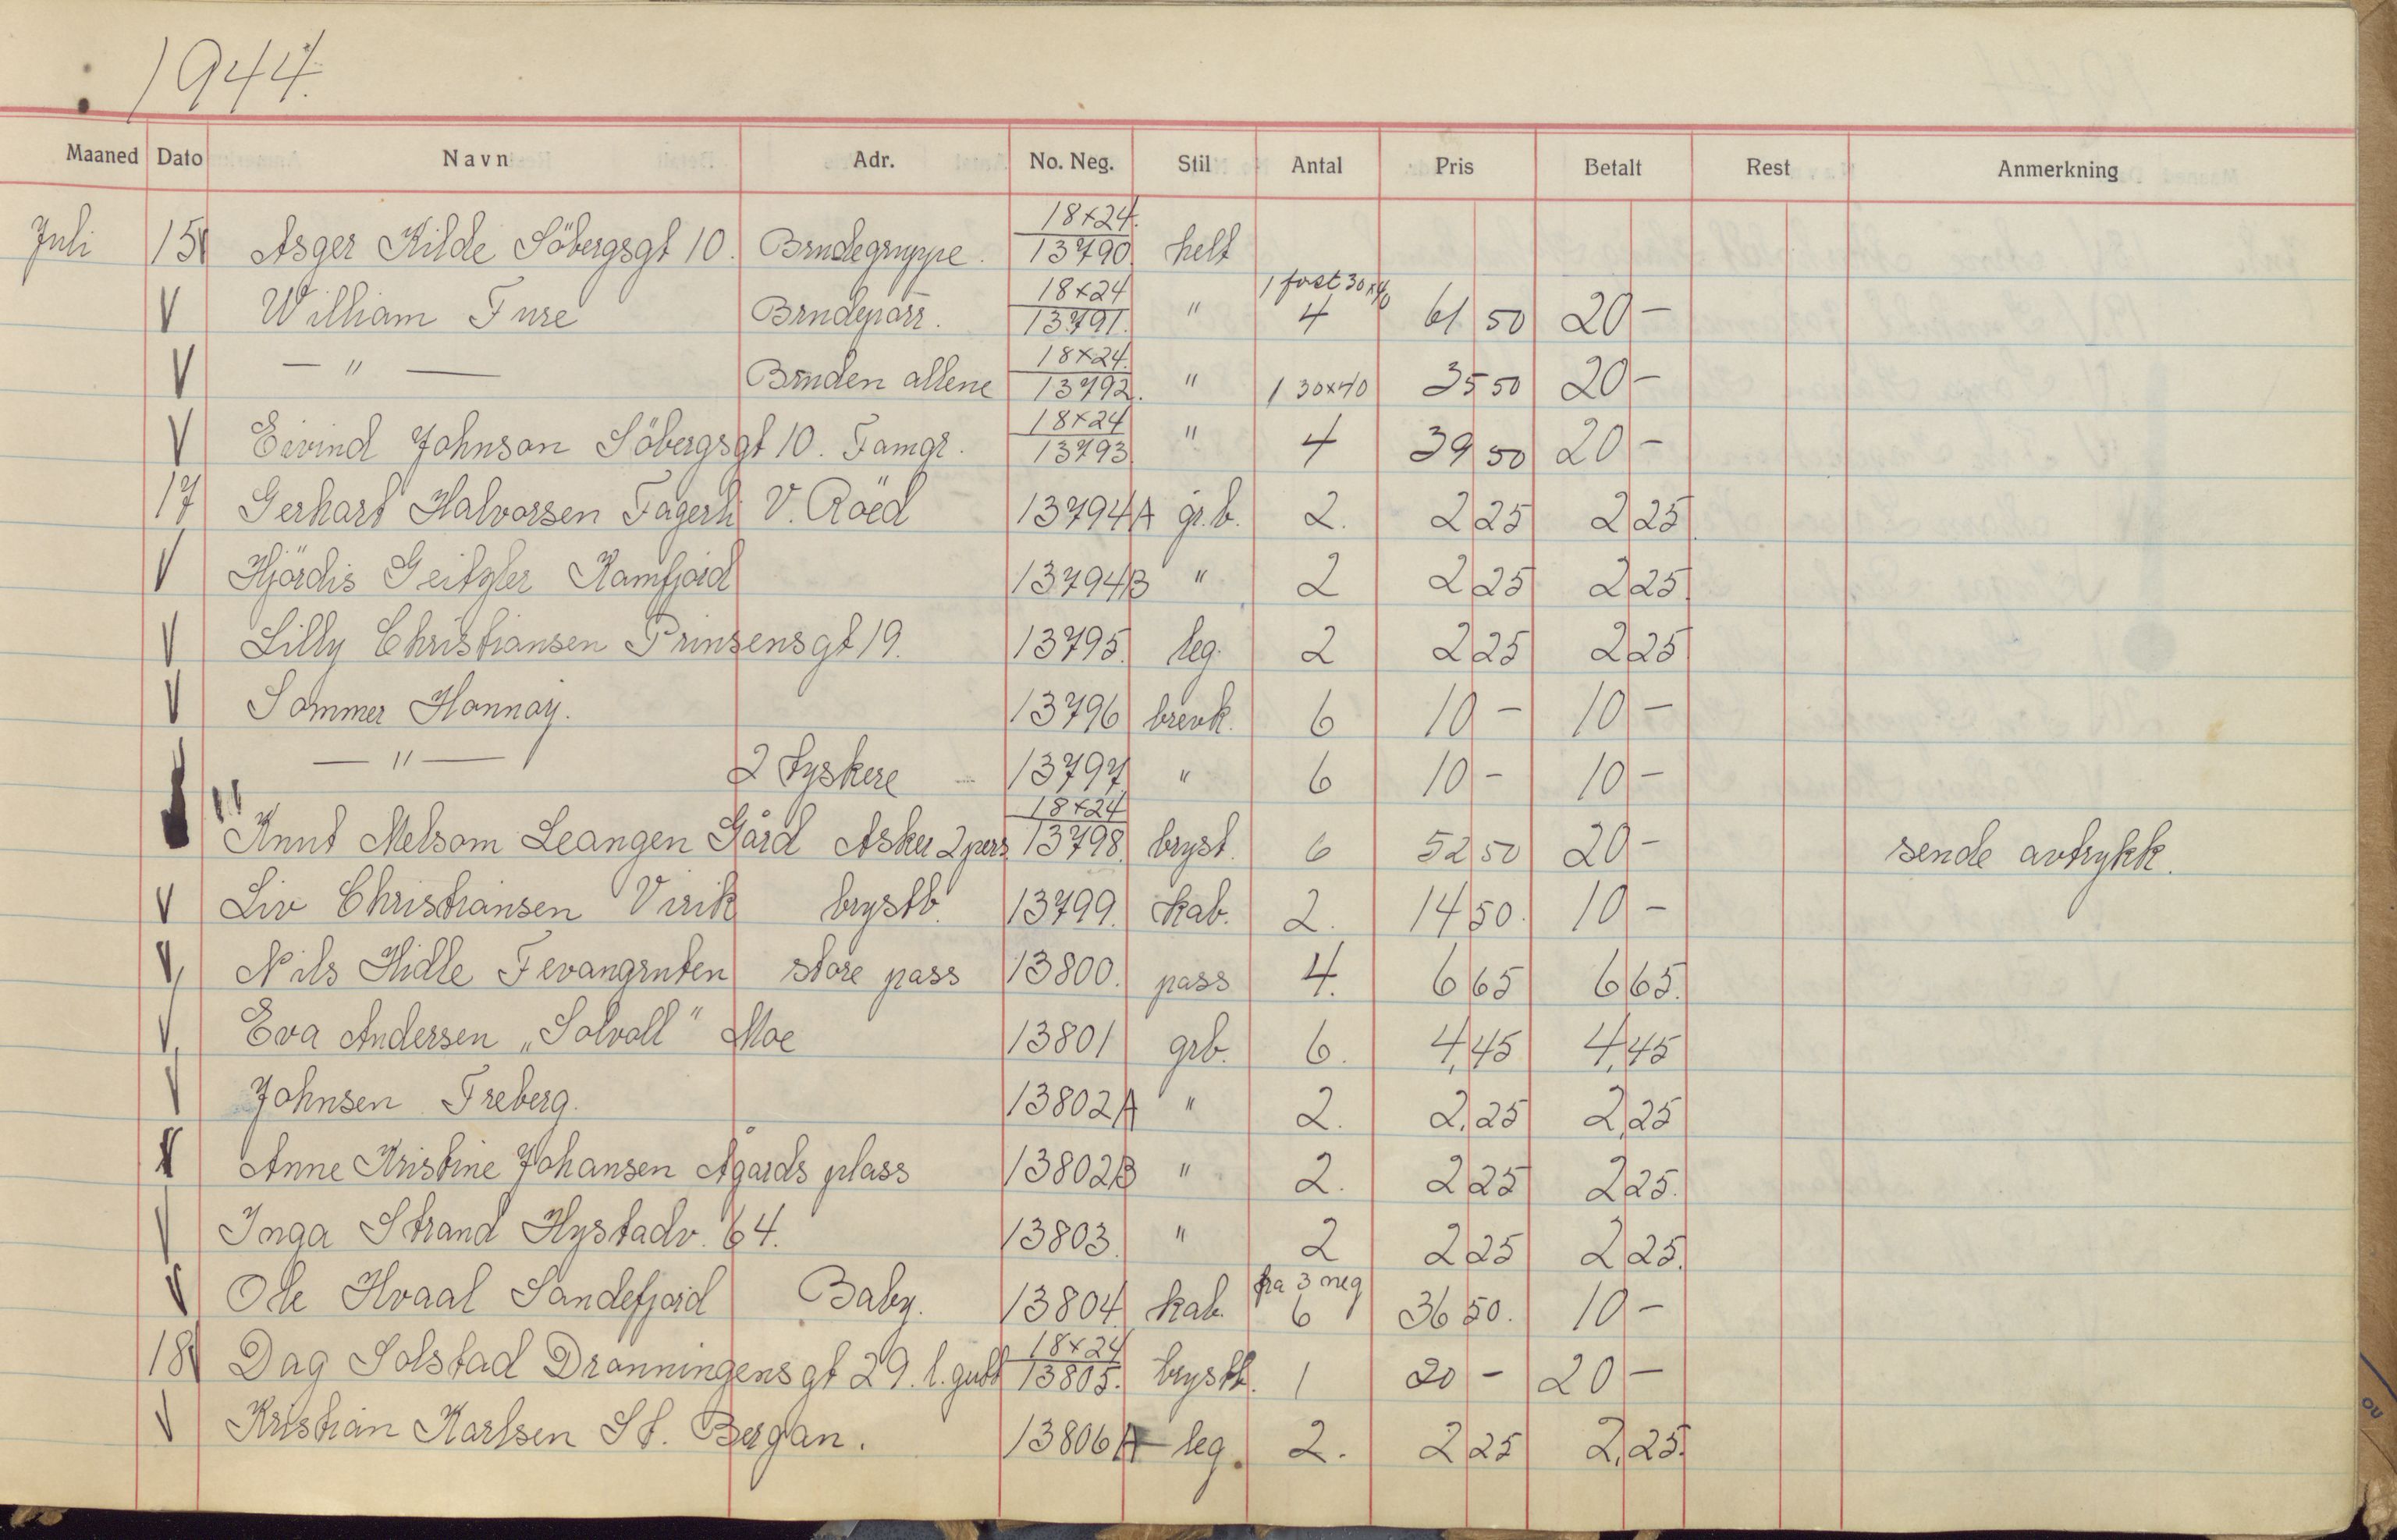 1944.
Maaned Dato Navn Adr. No. Neg. Stil Antal Pris Betalt Rest Anmerkning
Juli 15 V Asger Kilde Söbergsgt 10. Brudegruppe. 18x24. 13790 helt
V William Fure Brudepar. 18x24 13791. " 1 fost 30x40 4 61 50 20 –
V – " – Bruden allene 18x24. 13792. " 1 30x40 35 50 20 –
V Eivind Johnson Söbergsgt 10. Famgr. 18x24 13793 " 4 39 50 20 –
17 Gerhart Halvorsen Fagerli V. Röed 13794A gr.b. 2. 2 25 2 25.
V Hjördis Geitzler Kamfjord 13794B " 2 2 25 2 25.
V Lilly Christiansen Prinsensgt 19. 13795. leg. 2 2 25 2 25
V Sommer Hannay. 13796 brevk. 6 10 – 10 –
– " – 2 tyskere – 13797 " 6 10 – 10 –
Knut Melsom Leangen Gård Asker 2 pers 18x24 13798. bryst. 6 52 50 20 – sende avtrykk.
V Liv Christiansen Virik brystb. 13799. kab. 2. 14 50. 10 –
V Nils Hidle Fevangruten store pass 13800. pass 4. 6 65 6 65.
V Eva Andersen „Solvoll" Moe 13801 grb. 6. 4,45 4,45
V Johnsen Freberg. 13802A " 2. 2,25 2,25
V Anne Kristine Johansen Ågårds plass 13802B " 2. 2 25 2 25.
V Inga Strand Hystadv. 64. 13803. " 2 2 25 2 25.
V Ole Hvaal Sandefjord Baby. 13804. kab. fra 3 neg 6 36 50. 10 –
18 V Dag Solstad Dronningensgt 29. l. gutt 18x24 13805. brystb. 1 20 – 20 –
V Kristian Karlsen St. Bergan. 13806A leg. 2. 2 25 2,25.